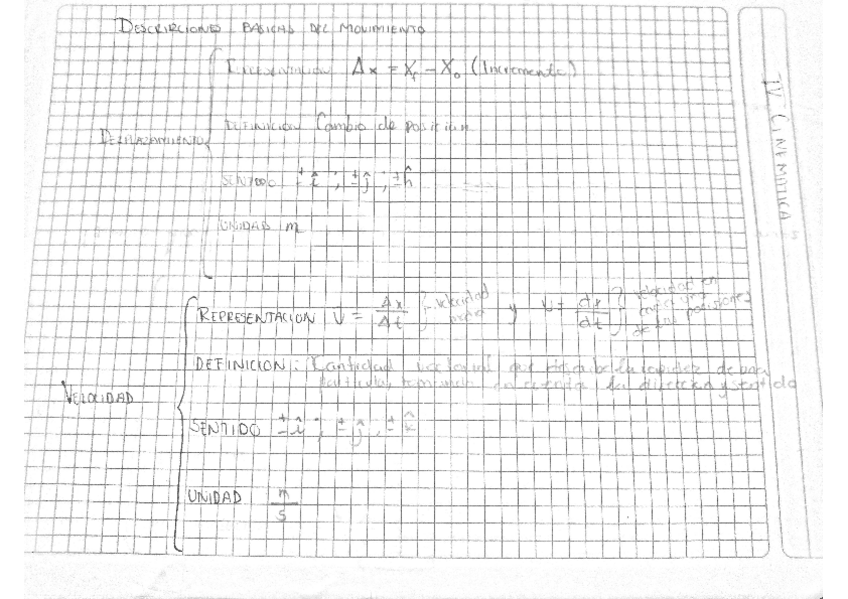 DESCRIPCIONES BASICAS DEL MOVIMIENTO
IV CINEMATICA
DESPLAZAMIENTO
REPRESENTACION Δx = Xf - X₀ (Incremento)
DEFINICION Cambio de posicion
SENTIDO ±î ; ±ĵ ; ±k̂
UNIDAD m
VELOCIDAD
REPRESENTACION V = Δx/Δt } velocidad media y V = dx/dt } velocidad en cada una de las posiciones
DEFINICION: Cantidad vectorial que describe la rapidez de una
particula, tomando en cuenta la direccion y sentido
SENTIDO ±î ; ±ĵ ; ±k̂
UNIDAD m/s